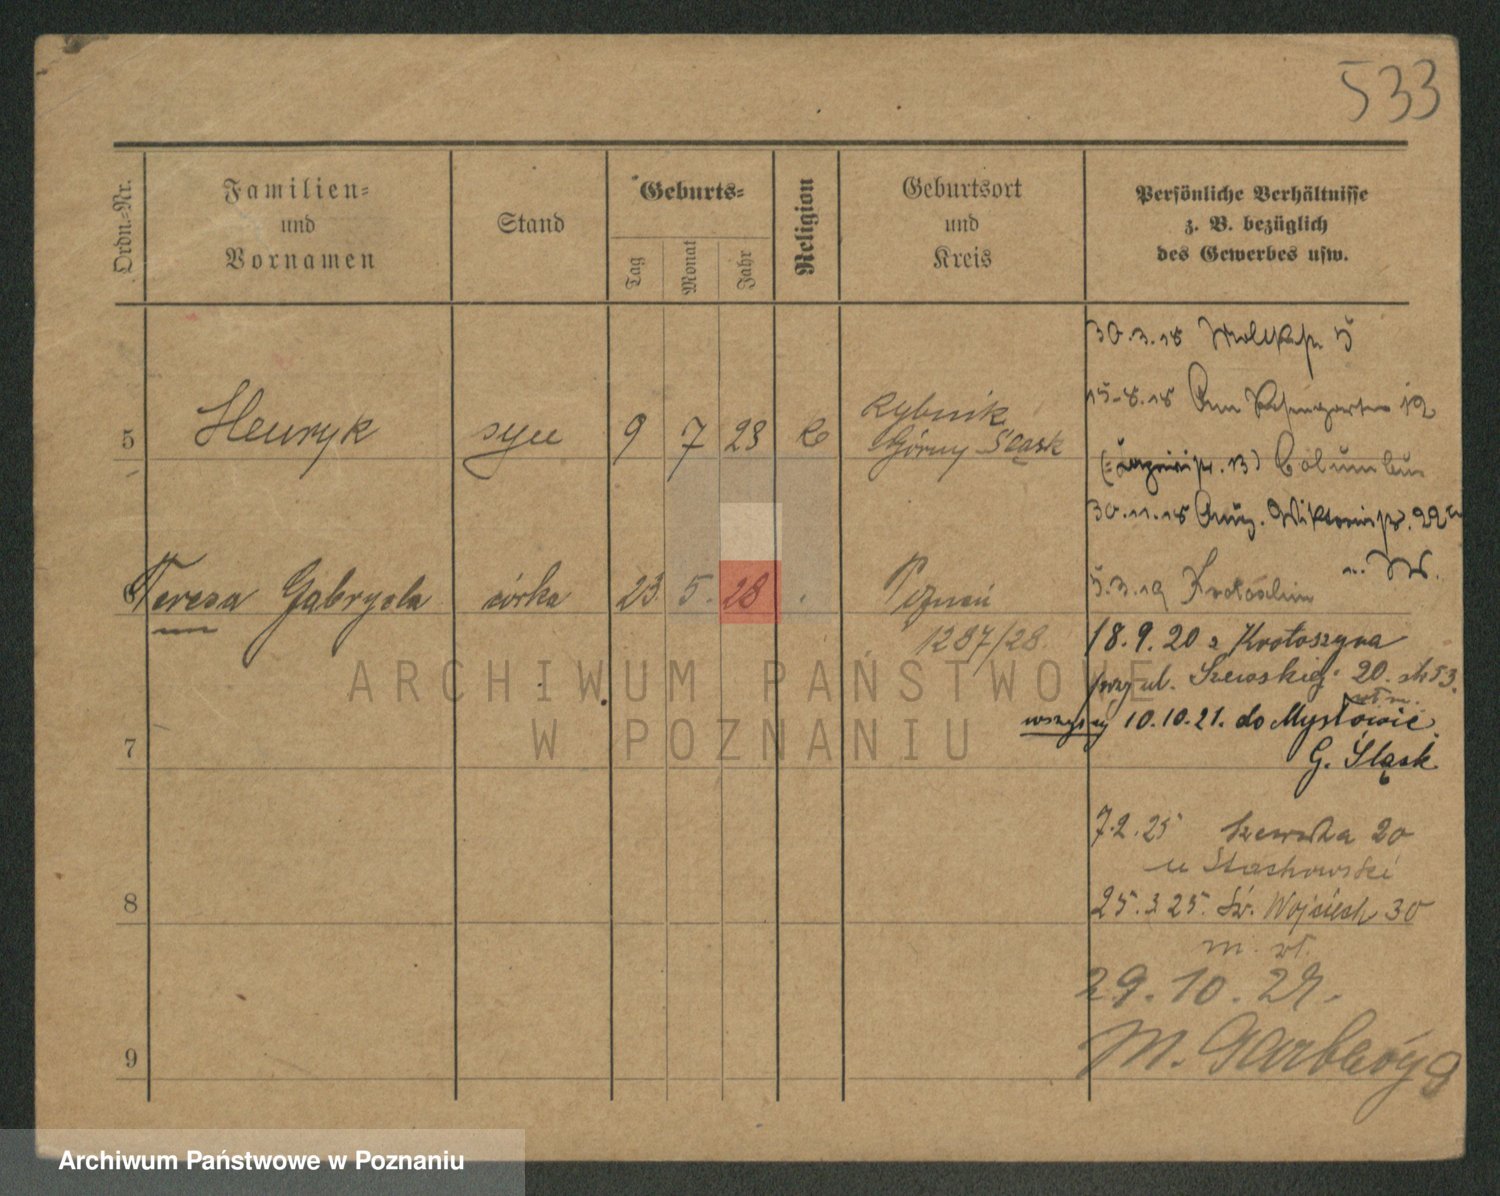 533
Ordn.-Nr.
Familien-
und
Vornamen
Stand
Geburts-
Tag
Monat
Jahr
Religion
Geburtsort
und
Kreis
Persönliche Verhältnisse
z. B. bezüglich
des Gewerbes usw.
30.3.18 5
5 Henryk syn 9 7 23 k Rybnik
Górny Śląsk
15.8.18 Am 12
13) Columbus
30.11.18 22
5.3.19 Krotoschin
6 Teresa Gabryela córka 23 5. 28 Poznań
1287/28.
18.9.20 z Krotoszyna
przy ul. Szewskiej 20. 53.
wszyscy 10.10.21. do Mysłowic
G. Śląsk
7
7.2.25 Szewska 20
u Stachowski
8
25.3.25. Św. Wojciech 30
m. wł.
29.10.27.
M. Garbary 9
9
ARCHIWUM PAŃSTWOWE
W POZNANIU
Archiwum Państwowe w Poznaniu